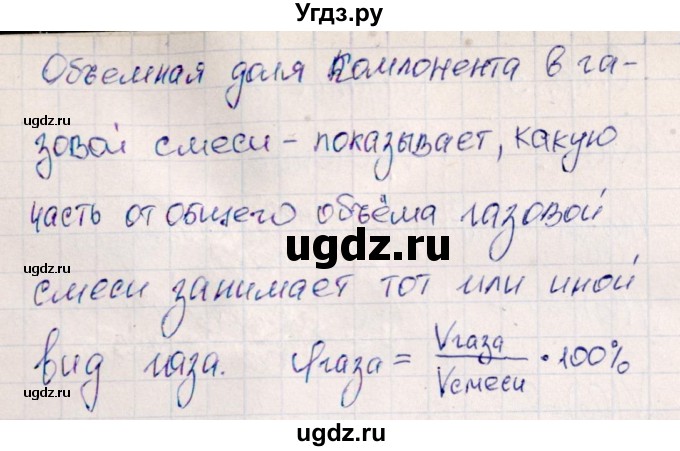 Угдз.ру
Объемная доля компонента в га-
зовой смеси - показывает, какую
часть от общего объёма газовой
смеси занимает тот или иной
вид газа. φгаза = Vгаза/Vсмеси · 100%
ugdz.ru
ugdz.ru
ugdz.ru
ugdz.ru
ugdz.ru
ugdz.ru
ugdz.ru
ugdz.ru